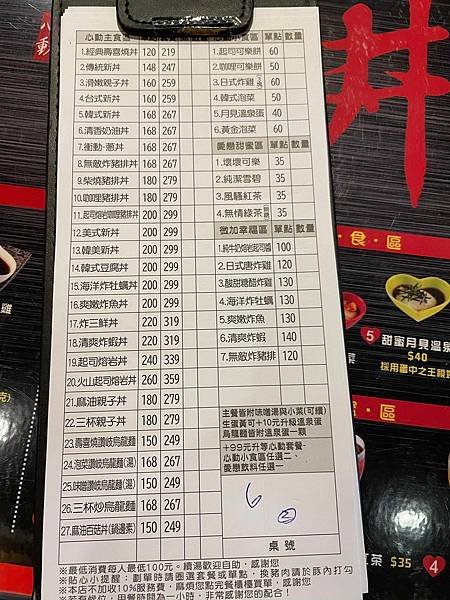 心動主食區
1.經典壽喜燒丼 120 219
2.傳統新丼 148 247
3.滑嫩親子丼 160 259
4.台式新丼 160 259
5.韓式新丼 168 267
6.清香奶油丼 168 267
7.衝動·蔥丼 168 267
8.無敵炸豬排丼 168 267
9.柴燒豬排丼 180 279
10.咖哩豬排丼 180 279
11.起司熔岩咖哩豬排丼 200 299
12.美式新丼 200 299
13.韓美新丼 200 299
14.韓式豆腐丼 200 299
15.海洋炸牡蠣丼 200 299
16.爽嫩炸魚丼 200 299
17.炸三鮮丼 220 319
18.清爽炸蝦丼 220 319
19.起司熔岩丼 240 339
20.火山起司熔岩丼 260 359
21.麻油親子丼 180 279
22.三杯親子丼 180 279
23.壽喜燒讚岐烏龍麵(湯) 150 249
24.泡菜讚岐烏龍麵(湯) 168 267
25.味噌讚岐烏龍麵(湯) 150 249
26.三杯炒烏龍麵 168 267
27.麻油百菇丼(鍋邊素) 150 249
食區 單點 數量
1.起司可樂餅 60
2.咖哩可樂餅 50
3.日式炸雞 60
4.韓式泡菜 50
5.月見溫泉蛋 40
6.黃金泡菜 60
愛戀甜蜜區 單點 數量
1.壞壞可樂 35
2.純潔雪碧 35
3.風騷紅茶 35
4.無情綠茶 35
微加幸福區 單點 數量
1.純牛奶熔岩起司醬 100
2.日式唐炸雞 120
3.酸甜糖醋炸雞 130
4.海洋炸牡蠣 130
5.爽嫩炸魚 130
6.清爽炸蝦 140
7.無敵炸豬排 120
主餐皆附味噌湯與小菜(可續)
生蛋黃可+10元升級溫泉蛋
烏龍麵皆附溫泉蛋一顆
+99元升等心動套餐-
心動小食區任選二、
愛戀飲料任選一
6
②
桌號
※最低消費每人最低100元。續湯歡迎自助，感謝您
※貼心小提醒：劃單時請圈選套餐或單點，換豬肉請於豚內打勾
※本店不加收10%服務費，麻煩您點完餐櫃檯買單，感謝您
用餐時間為一小時，非常感謝您的配合！
丼
食·區
5 甜蜜月見溫泉
$40
採用蛋中之王
蜜·區
紅茶 $35
4